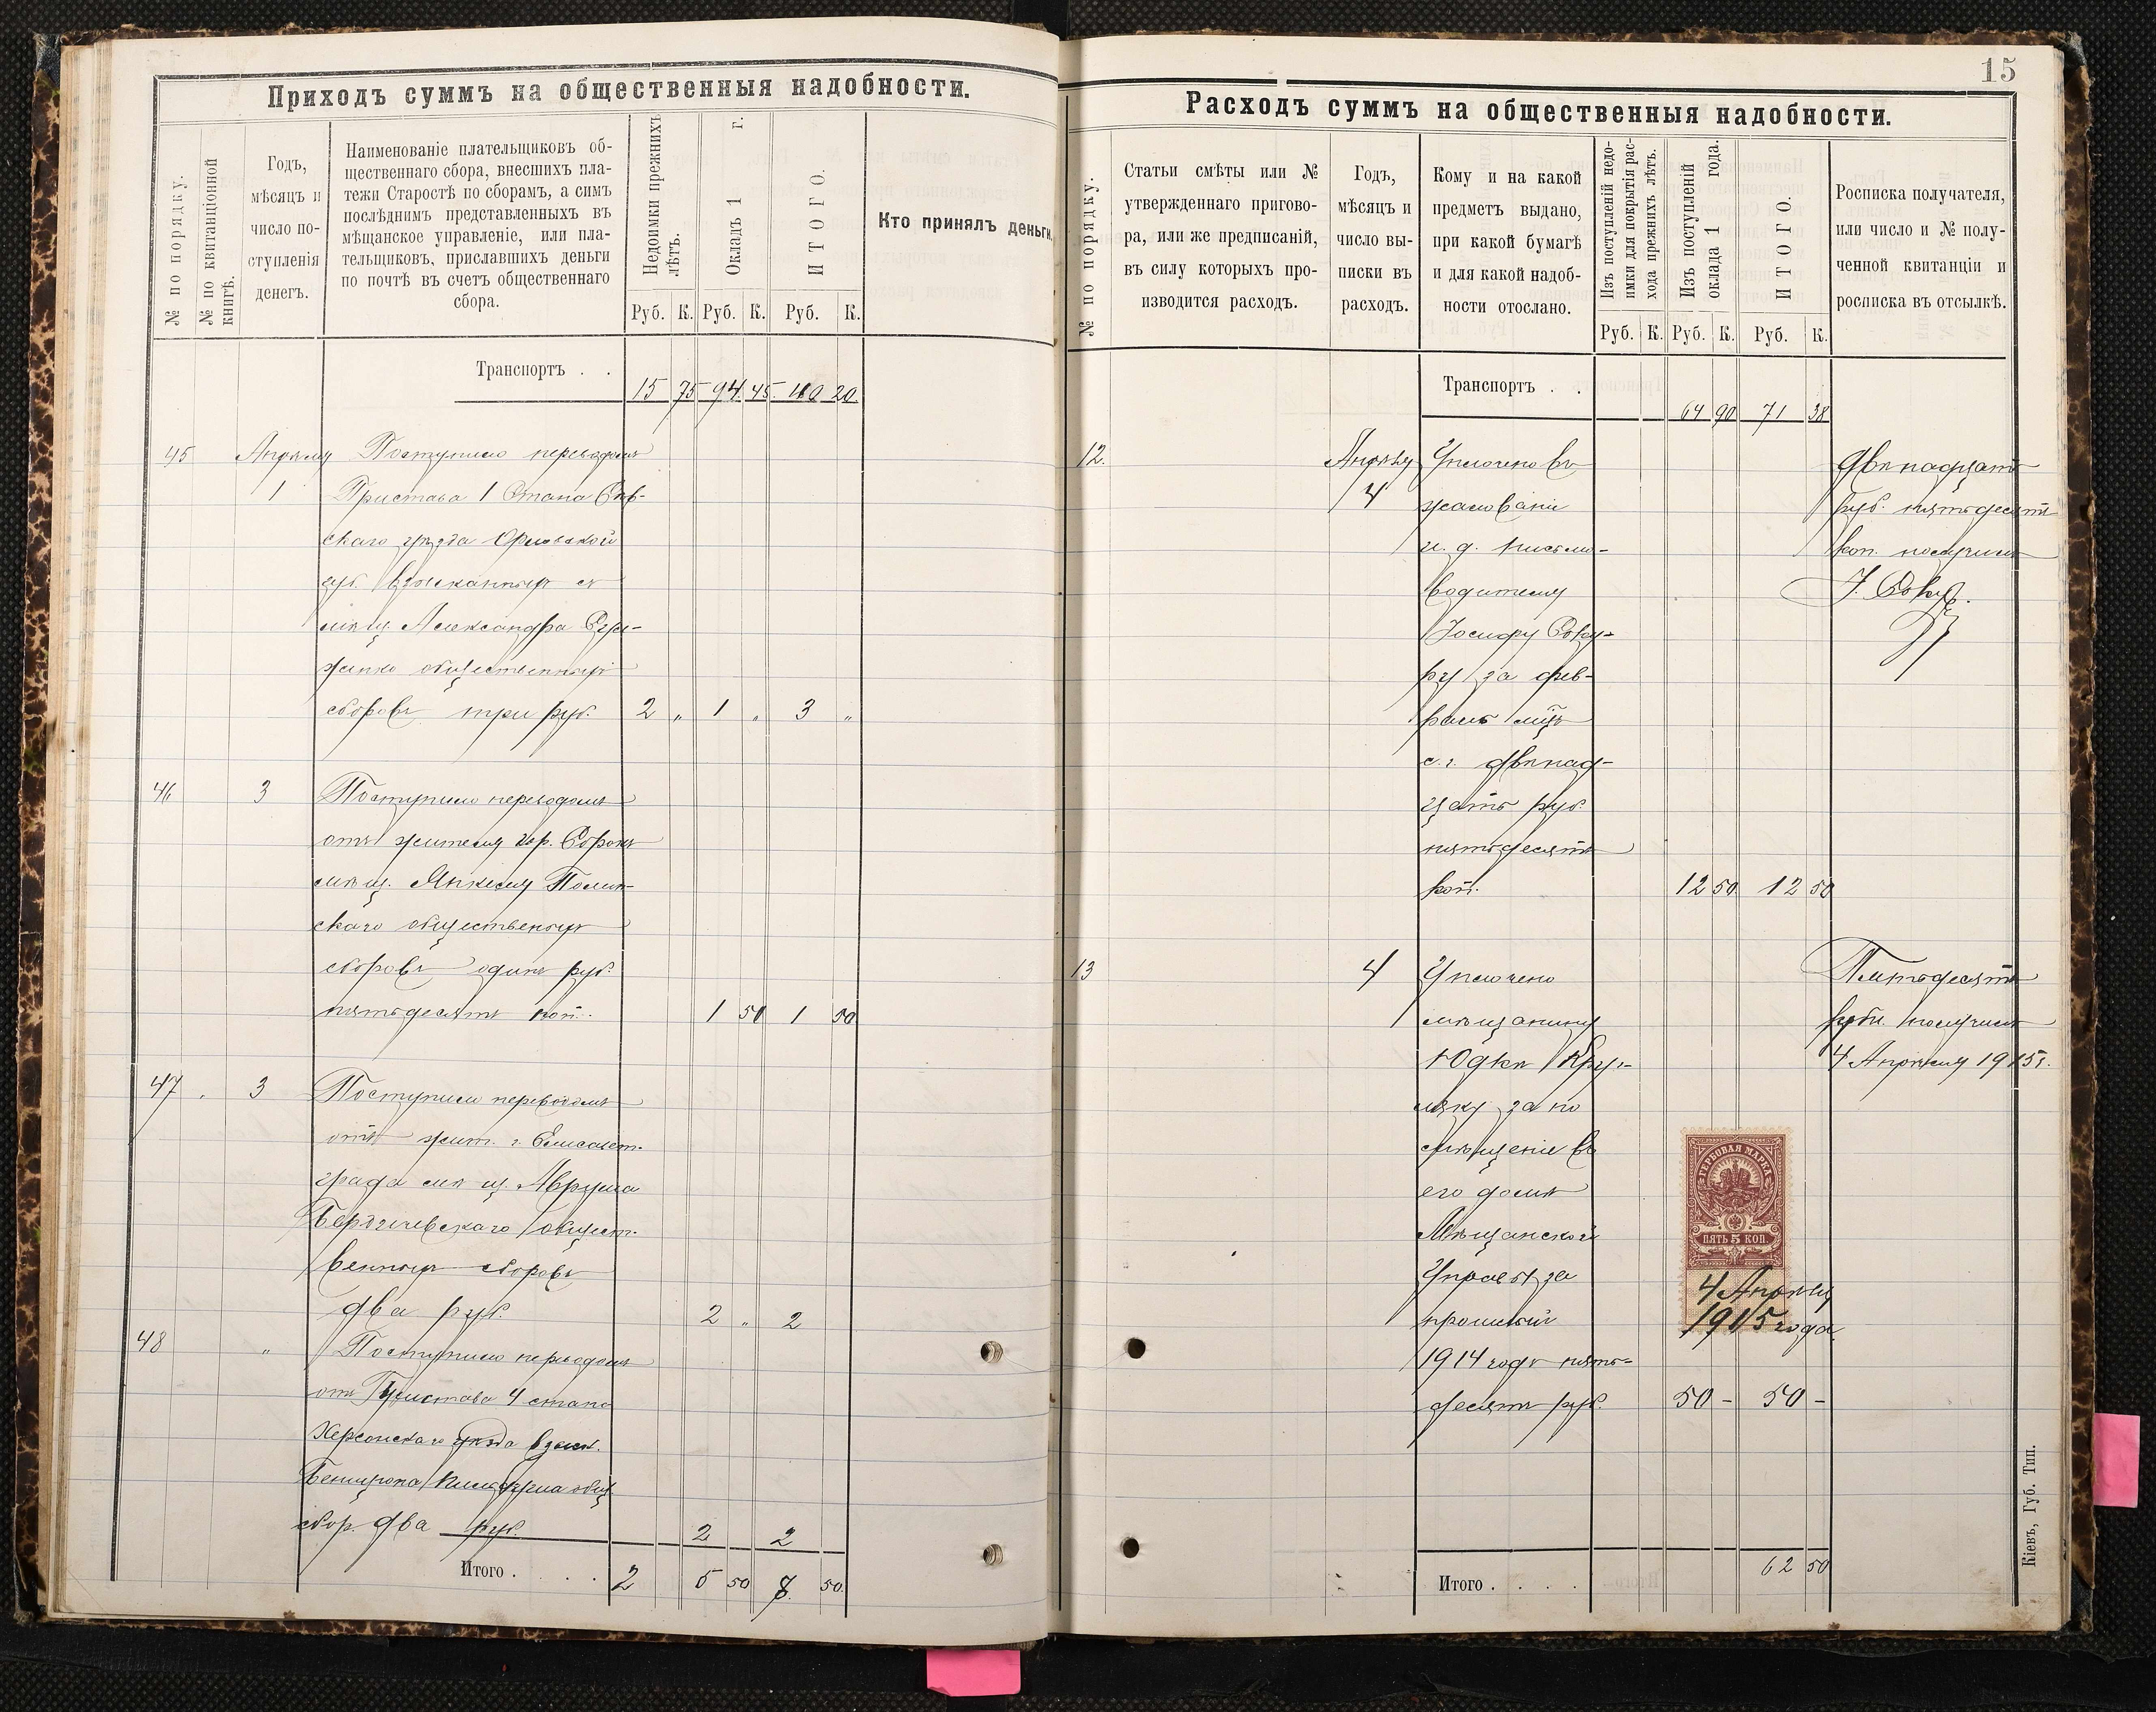 Приходъ суммъ на общественныя надобности.
№ по порядку.
№ по квитанціонной
книгѣ.
Годъ,
мѣсяцъ и
число по-
ступленія
денегъ.
Наименованіе плательщиковъ об-
щественнаго сбора, внесшихъ пла-
тежи Старостѣ по сборамъ, а симъ
послѣднимъ представленныхъ въ
мѣщанское управленіе, или пла-
тельщиковъ, приславшихъ деньги
по почтѣ въ счетъ общественнаго
сбора.
Недоимки прежнихъ
лѣтъ.
Окладъ 1 г.
ИТОГО.
Кто принялъ деньги.
Руб. К. Руб. К. Руб. К.
Транспортъ . .
15 75 94 45 110 20
45 Апрѣля Поступило переводомъ
1 Пристава 1 Стана Сѣв-
скаго уѣзда Орловской
губ. взысканныхъ съ
мѣщ. Александра
общественныхъ
сборовъ три руб. 2 „ 1 „ 3 „
46 3 Поступило переводомъ
отъ жителя гор. Сороки
мѣщ. Янкеля Полин-
скаго общественныхъ
сборовъ одинъ руб.
пятьдесятъ коп. 1 50 1 50
47 3 Поступило переводомъ
отъ жит. г. Елисавет-
града мѣщ. Аврума
Бердичевскаго общест-
венныхъ сборовъ
два руб. 2 „ 2
48 „ Поступило переводомъ
отъ Пристава 4 стана
Херсонскаго уѣзда взыск.
общ.
сбор. два руб. 2 2
Итого . . . . 2 5 50 8. 50.
15
Расходъ суммъ на общественныя надобности.
№ по порядку.
Статьи смѣты или №
утвержденнаго пригово-
ра, или же предписаній,
въ силу которыхъ про-
изводится расходъ.
Годъ,
мѣсяцъ и
число вы-
писки въ
расходъ.
Кому и на какой
предметъ выдано,
при какой бумагѣ
и для какой надоб-
ности отослано.
Изъ поступленій недо-
имки для покрытія рас-
хода прежнихъ лѣтъ.
Изъ поступленій
оклада 1 года.
ИТОГО.
Росписка получателя,
или число и № полу-
ченной квитанціи и
росписка въ отсылкѣ.
Руб. К. Руб. К. Руб. К.
Транспортъ . .
64 90 71 38
12. Апрѣля Уплочено въ
4 жалованіе
и. д. письмо-
водителю
Іосифу
ру за фев-
раль мѣц
с. г. двѣнад-
цать руб.
пятьдесятъ
коп. 12 50 12 50
двѣнадцать
руб. пятьдесятъ
коп. получилъ
13 4 Уплочено
мѣщанину
Юдкѣ Кру-
ляку за по
мѣщеніе въ
его домѣ
Мѣщанской
Управы за
прошлый
1914 годъ пять-
десятъ руб. 50 - 50 -
Пятьдесятъ
рубл. получилъ
4 Апрѣля 1915 г.
ГЕРБОВАЯ МАРКА
ПЯТЬ 5 КОП.
4 Апрѣля
1915 года
Итого . . . . 62 50
Кіевъ, Губ. Тип.